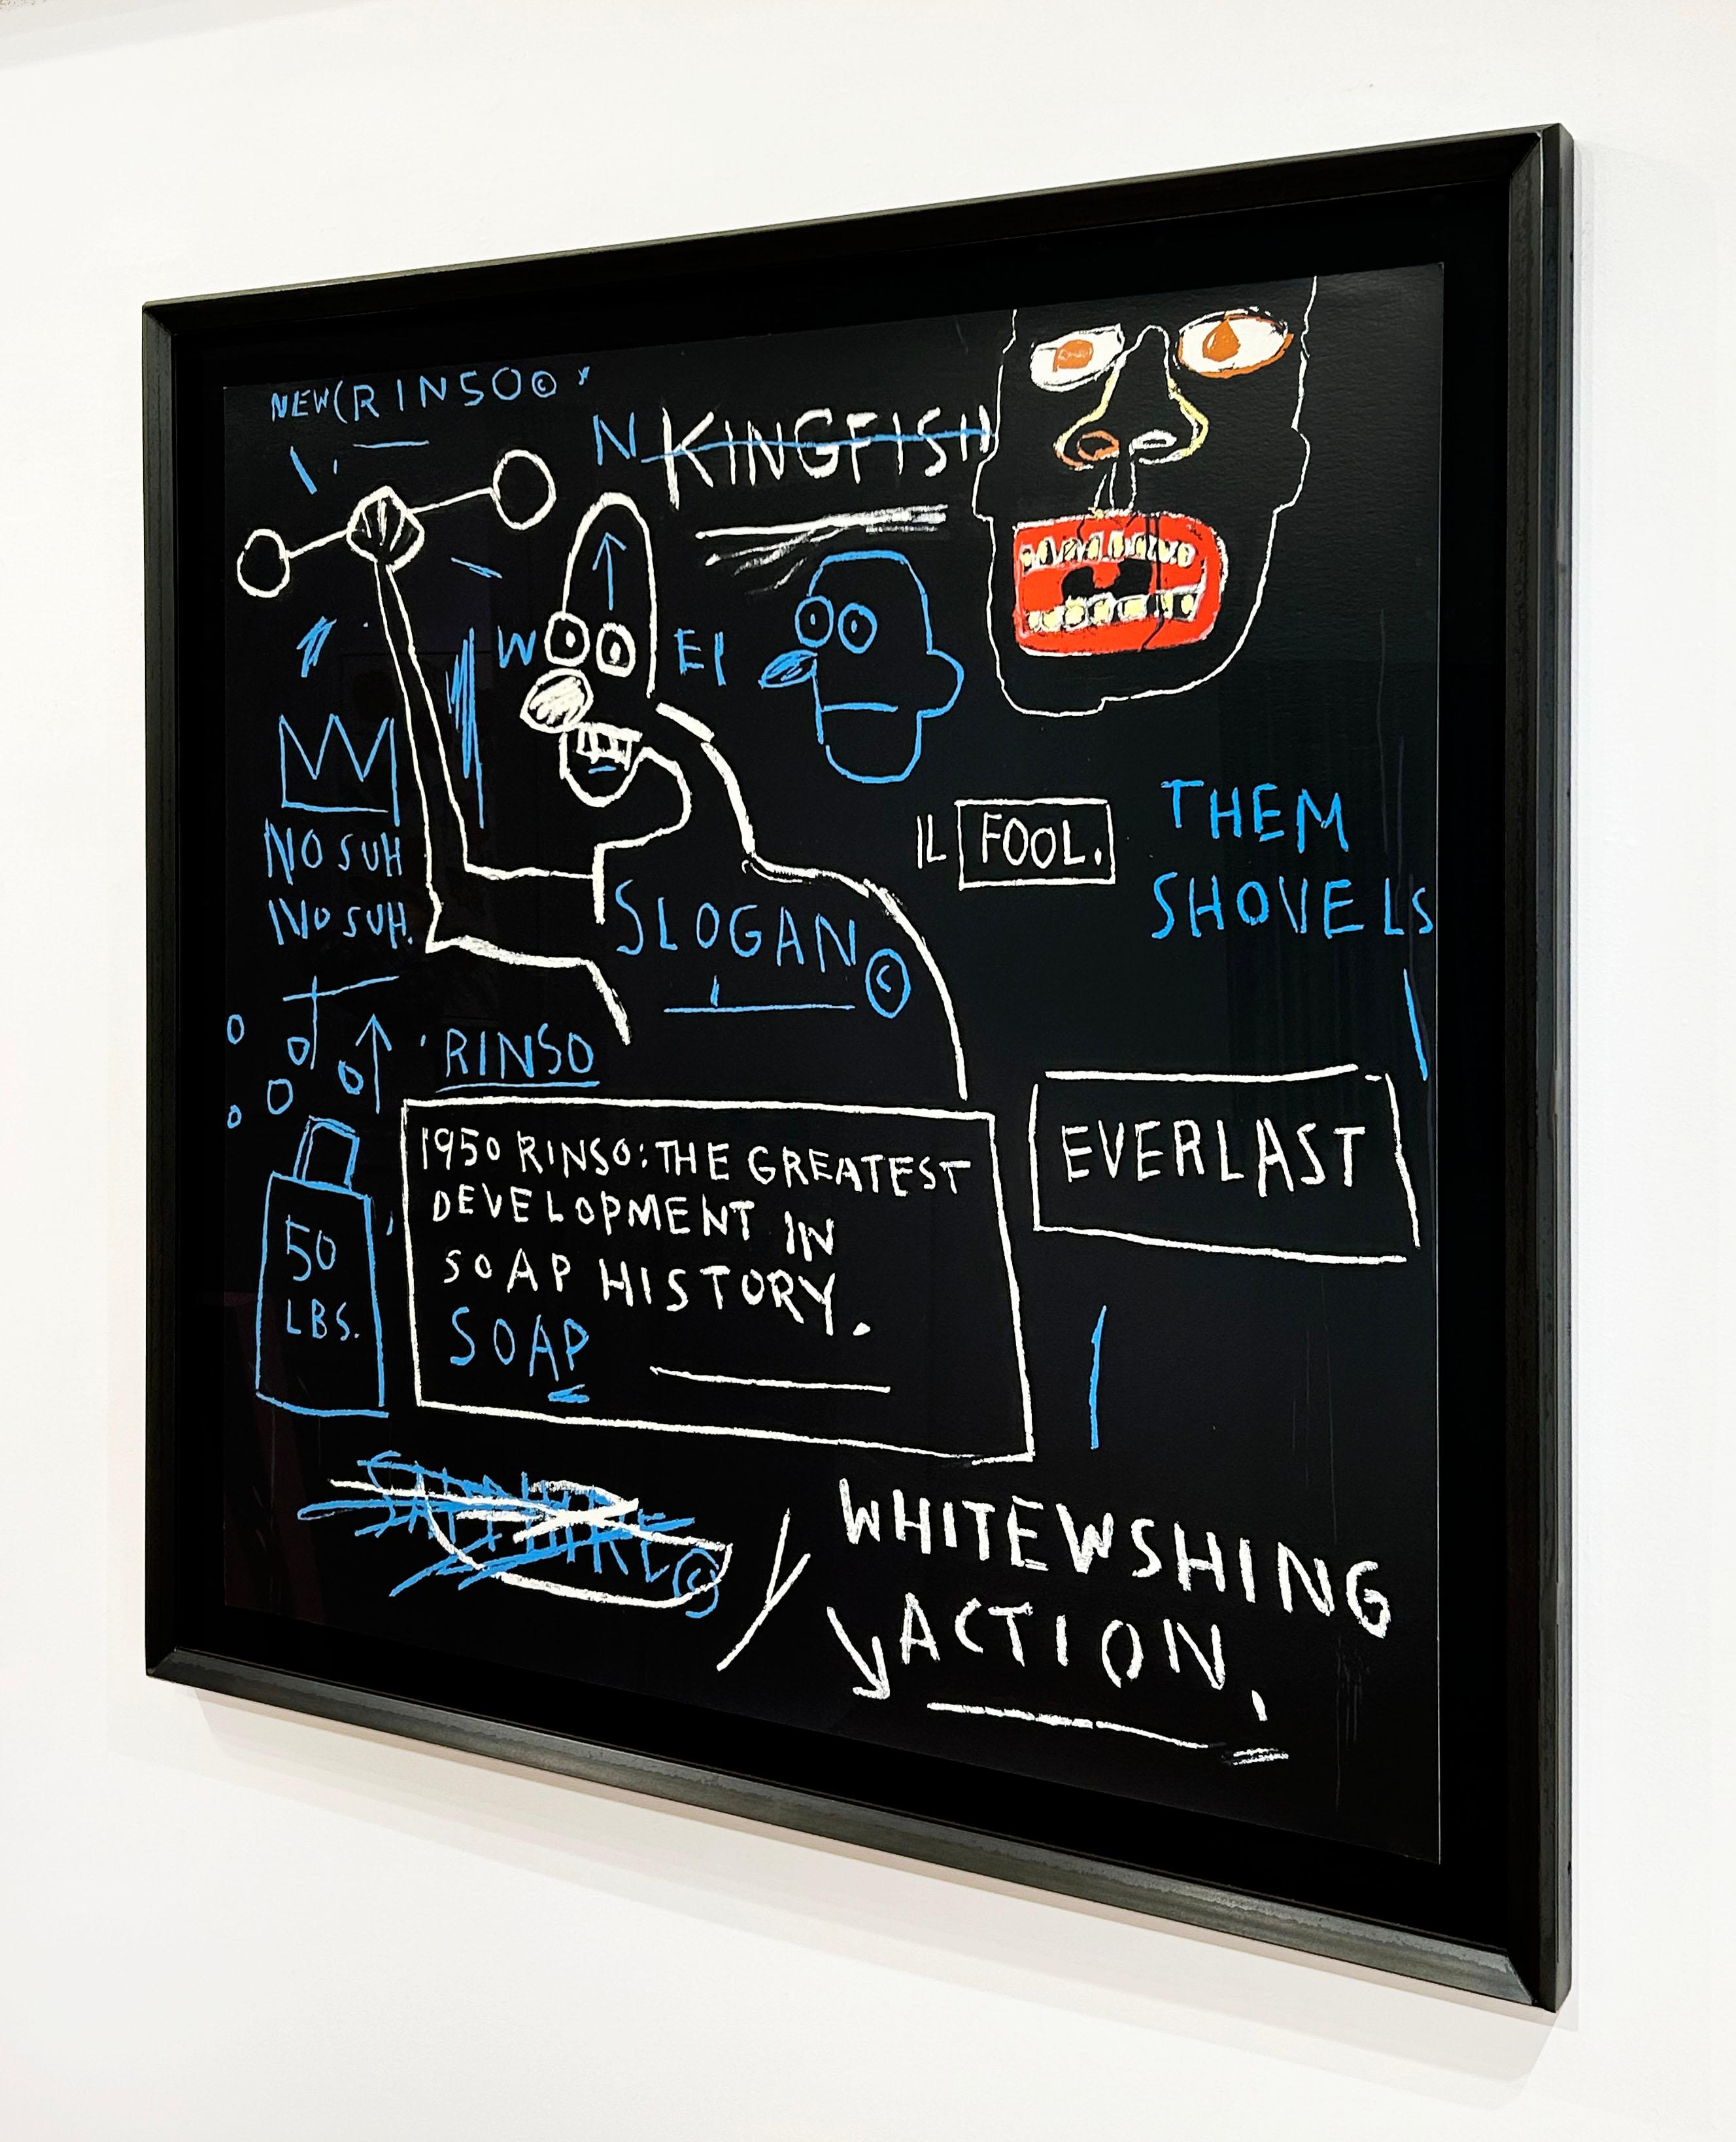 NEW (RINSO©
N KINGFISH
W EI
NO SUH
NO SUH.
IL FOOL.
THEM
SHOVELS
SLOGAN©
'RINSO
1950 RINSO: THE GREATEST
DEVELOPMENT IN
SOAP HISTORY.
SOAP
EVERLAST
50
LBS.
WHITEWSHING
ACTION.